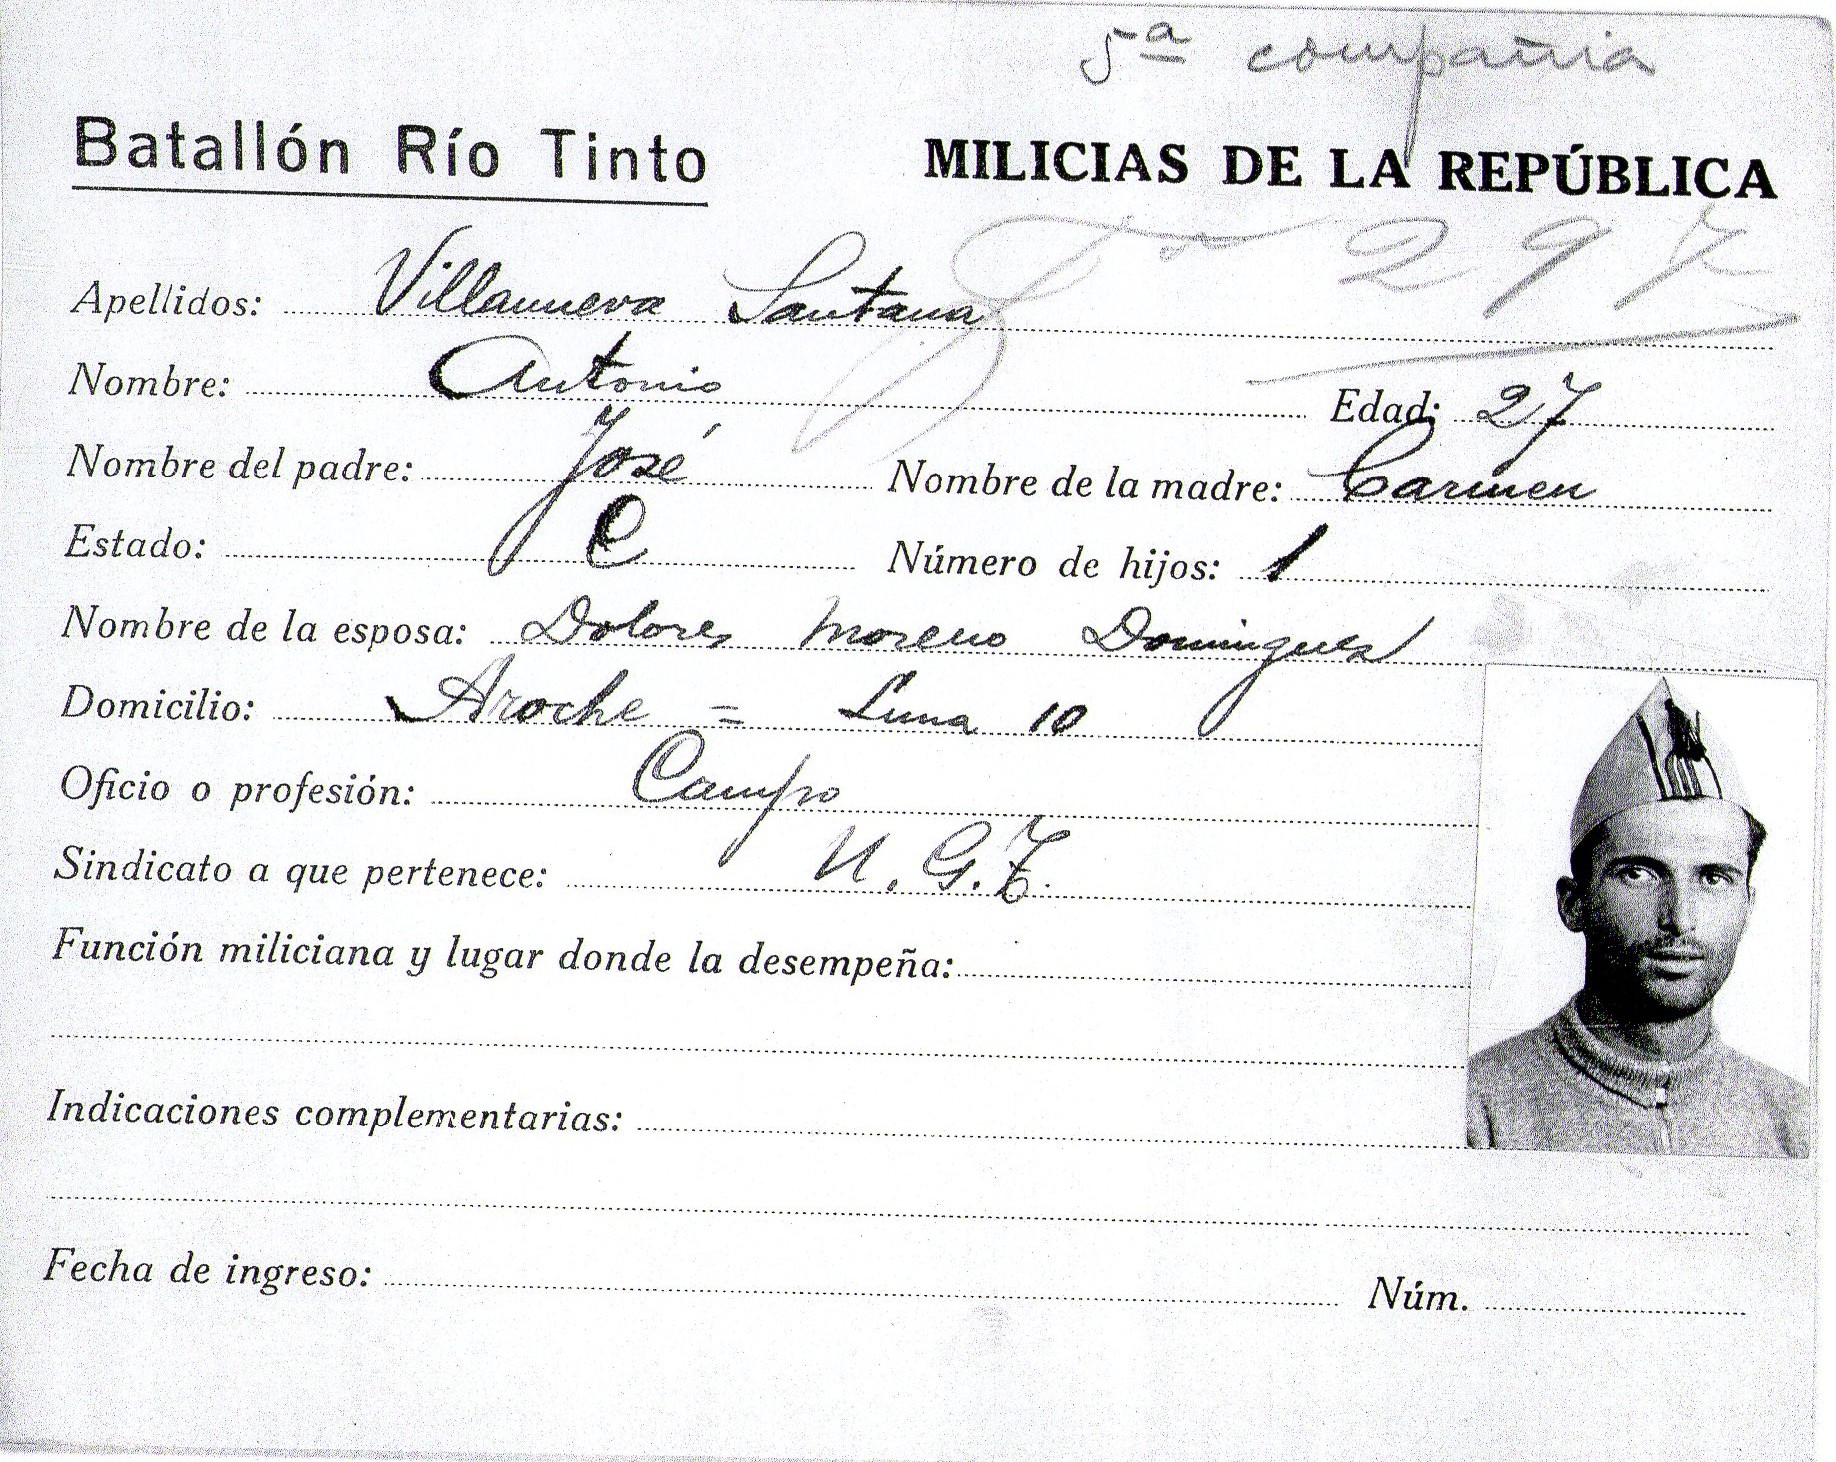 5ª compañia
Batallón Río Tinto MILICIAS DE LA REPÚBLICA
297
Apellidos: Villanueva Santana
Nombre: Antonio Edad: 27
Nombre del padre: José Nombre de la madre: Carmen
Estado: C Número de hijos: 1
Nombre de la esposa: Dolores Moreno Domingues
Domicilio: Aroche = Luna 10
Oficio o profesión: Campo
Sindicato a que pertenece: U.G.T.
Función miliciana y lugar donde la desempeña:
Indicaciones complementarias:
Fecha de ingreso: Núm.